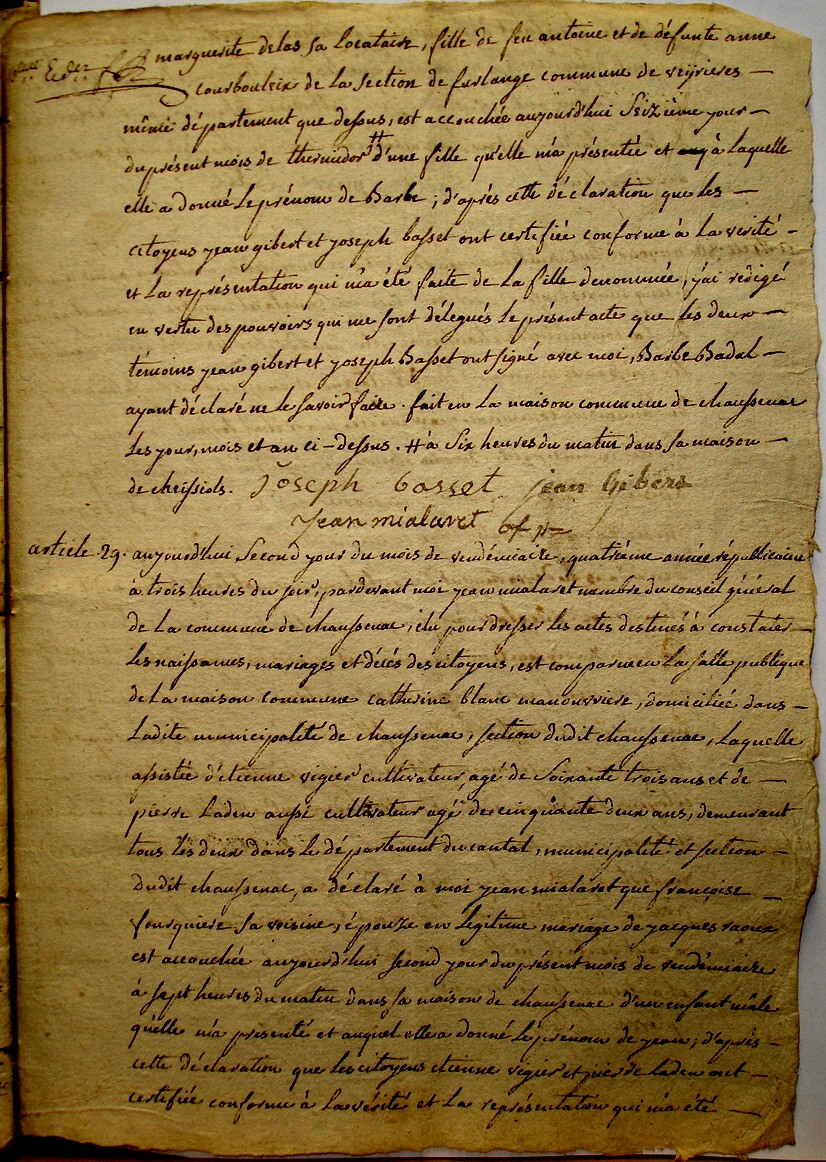 marguerite delas sa locataire, fille de feu antoine et de défunte anne
courbouleix de la section de furlange commune de veyrieres —
même département que dessus, est accouchée aujourd'hui Seizième jour —
du présent mois de thermidor # d'une fille qu'elle m'a présentée et à laquelle
elle a donné le prénom de Barbe ; d'après cette déclaration que les —
citoyens jean gibert et joseph basset ont certifiée conforme à la vérité —
et la représentation qui m'a été faite de la fille denommée, j'ai redigé
en vertu des pouvoirs qui me sont délégués le présent acte que les deux —
témoins jean gibert et joseph Basset ont signé avec moi, Barbe Badal —
ayant déclaré ne le savoir faire . fait en la maison commune de chaussenac
les jour, mois et an ci-dessus . # à Six heures du matin dans sa maison —
de cheissiols. Joseph basset jean Gibers
Jean mialaret of p
article 29. aujourd'hui Second jour du mois de vendémiaire, quatrième année républicaine
à trois heures du soir, pardevant moi jean mialaret membre du conseil général
de la commune de chaussenac, élu pour dresser les actes destinés à constater —
les naissances, mariages et décés des citoyens, est comparue en la salle publique
de la maison commune catherine blanc manouvriere, domiciliée dans —
ladite municipalité de chaussenac, section dudit chaussenac, laquelle
assistée d'etienne vigier cultivateur, agé de Soixante trois ans et de —
pierre Laden aussi cultivateur agé de cinquante deux ans, demeurant
tous les deux dans le département du cantal, municipalité et section —
dudit chaussenac, a déclaré à moi jean mialaret que françoise —
fourquiere sa voisine, épouze en legitime mariage de jacques raoux
est accouchée aujourd'hui second jour du présent mois de vendémiaire
à sept heures du matin dans sa maison de chaussenac d'un enfant mâle
qu'elle m'a presenté et auquel elle a donné le prénom de jean ; d'après —
cette déclaration que les citoyens etienne vigier et pierre laden ont —
certifiée conforme à la vérité et la représentation qui m'a été —